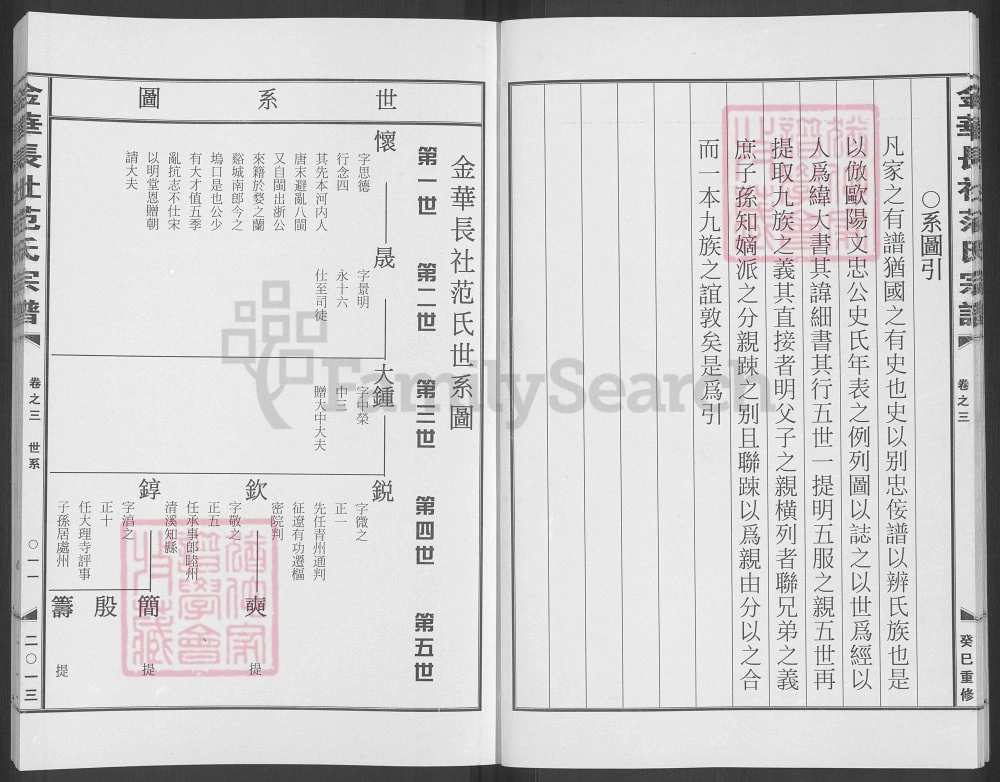 金華長社范氏宗譜
卷之三
癸巳重修
○系圖引
凡家之有譜猶國之有史也史以別忠佞譜以辨氏族也是
以倣歐陽文忠公史氏年表之例列圖以誌之以世爲經以
人爲緯大書其諱細書其行五世一提明五服之親五世再
提取九族之義其直接者明父子之親橫列者聯兄弟之義
庶子孫知嫡派之分親踈之別且聯踈以爲親由分以之合
而一本九族之誼敦矣是爲引
世系圖
金華長社范氏世系圖
第一世
第二世
第三世
第四世
第五世
懷
字思德
行念四
其先本河內人
唐末避亂八閩
又自閩出浙公
來籍於婺之蘭
谿城南郎今之
塢口是也公少
有大才值五季
亂抗志不仕宋
以明堂恩贈朝
請大夫
晟
字景明
永十六
仕至司徒
大鍾
字申榮
中三
贈大中大夫
鋭
字微之
正一
先任青州通判
征遼有功遷樞
密院判
欽
字敬之
正五
任承事郎睦州
清溪知縣
錞
字浯之
正十
任大理寺評事
子孫居處州
奭
提
簡
提
殷
籌
提
金華長社范氏宗譜
卷之三 世系
○一一
二○一三
FamilySearch